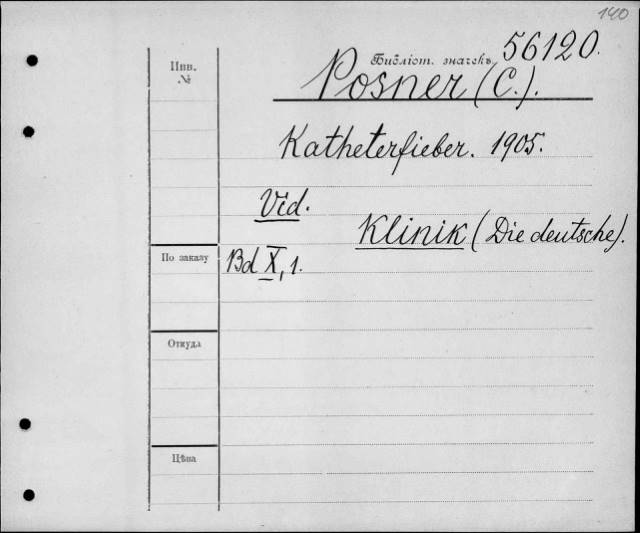 140
Инв. №
Библіот. значекъ 56120.
Posner (C.).
Katheterfieber. 1905.
Vid.
Klinik (Die deutsche).
По заказу
Bd X, 1.
Откуда
Цѣна